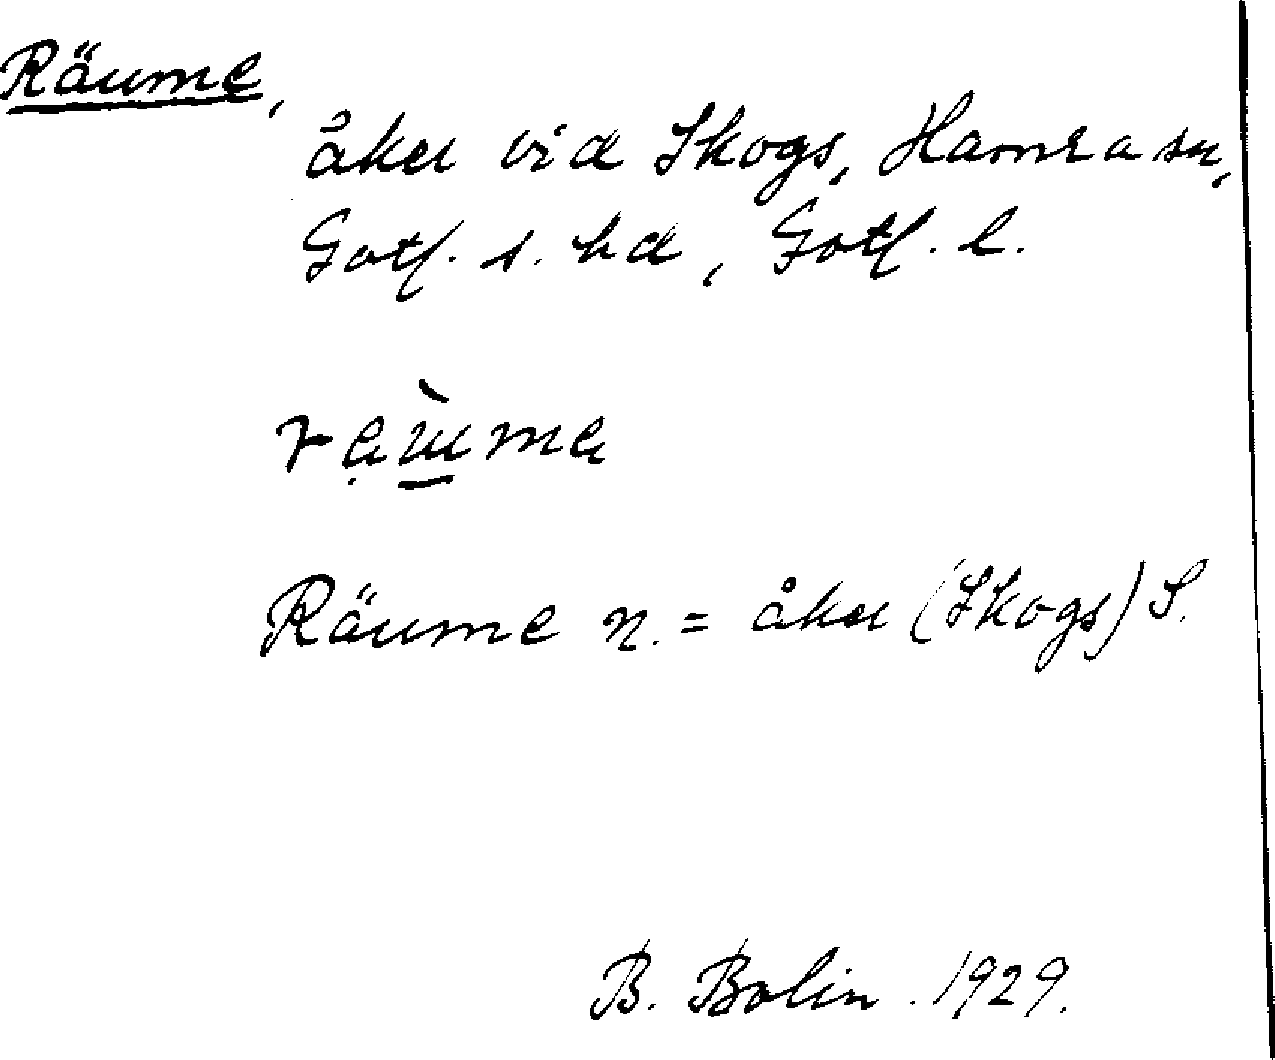 Räume,
åker vid Skogs, Hamra sn,
Gotl. s. hd, Gotl. l.
Räume n. = åker (Skogs) S.
B. Bolin. 1929.